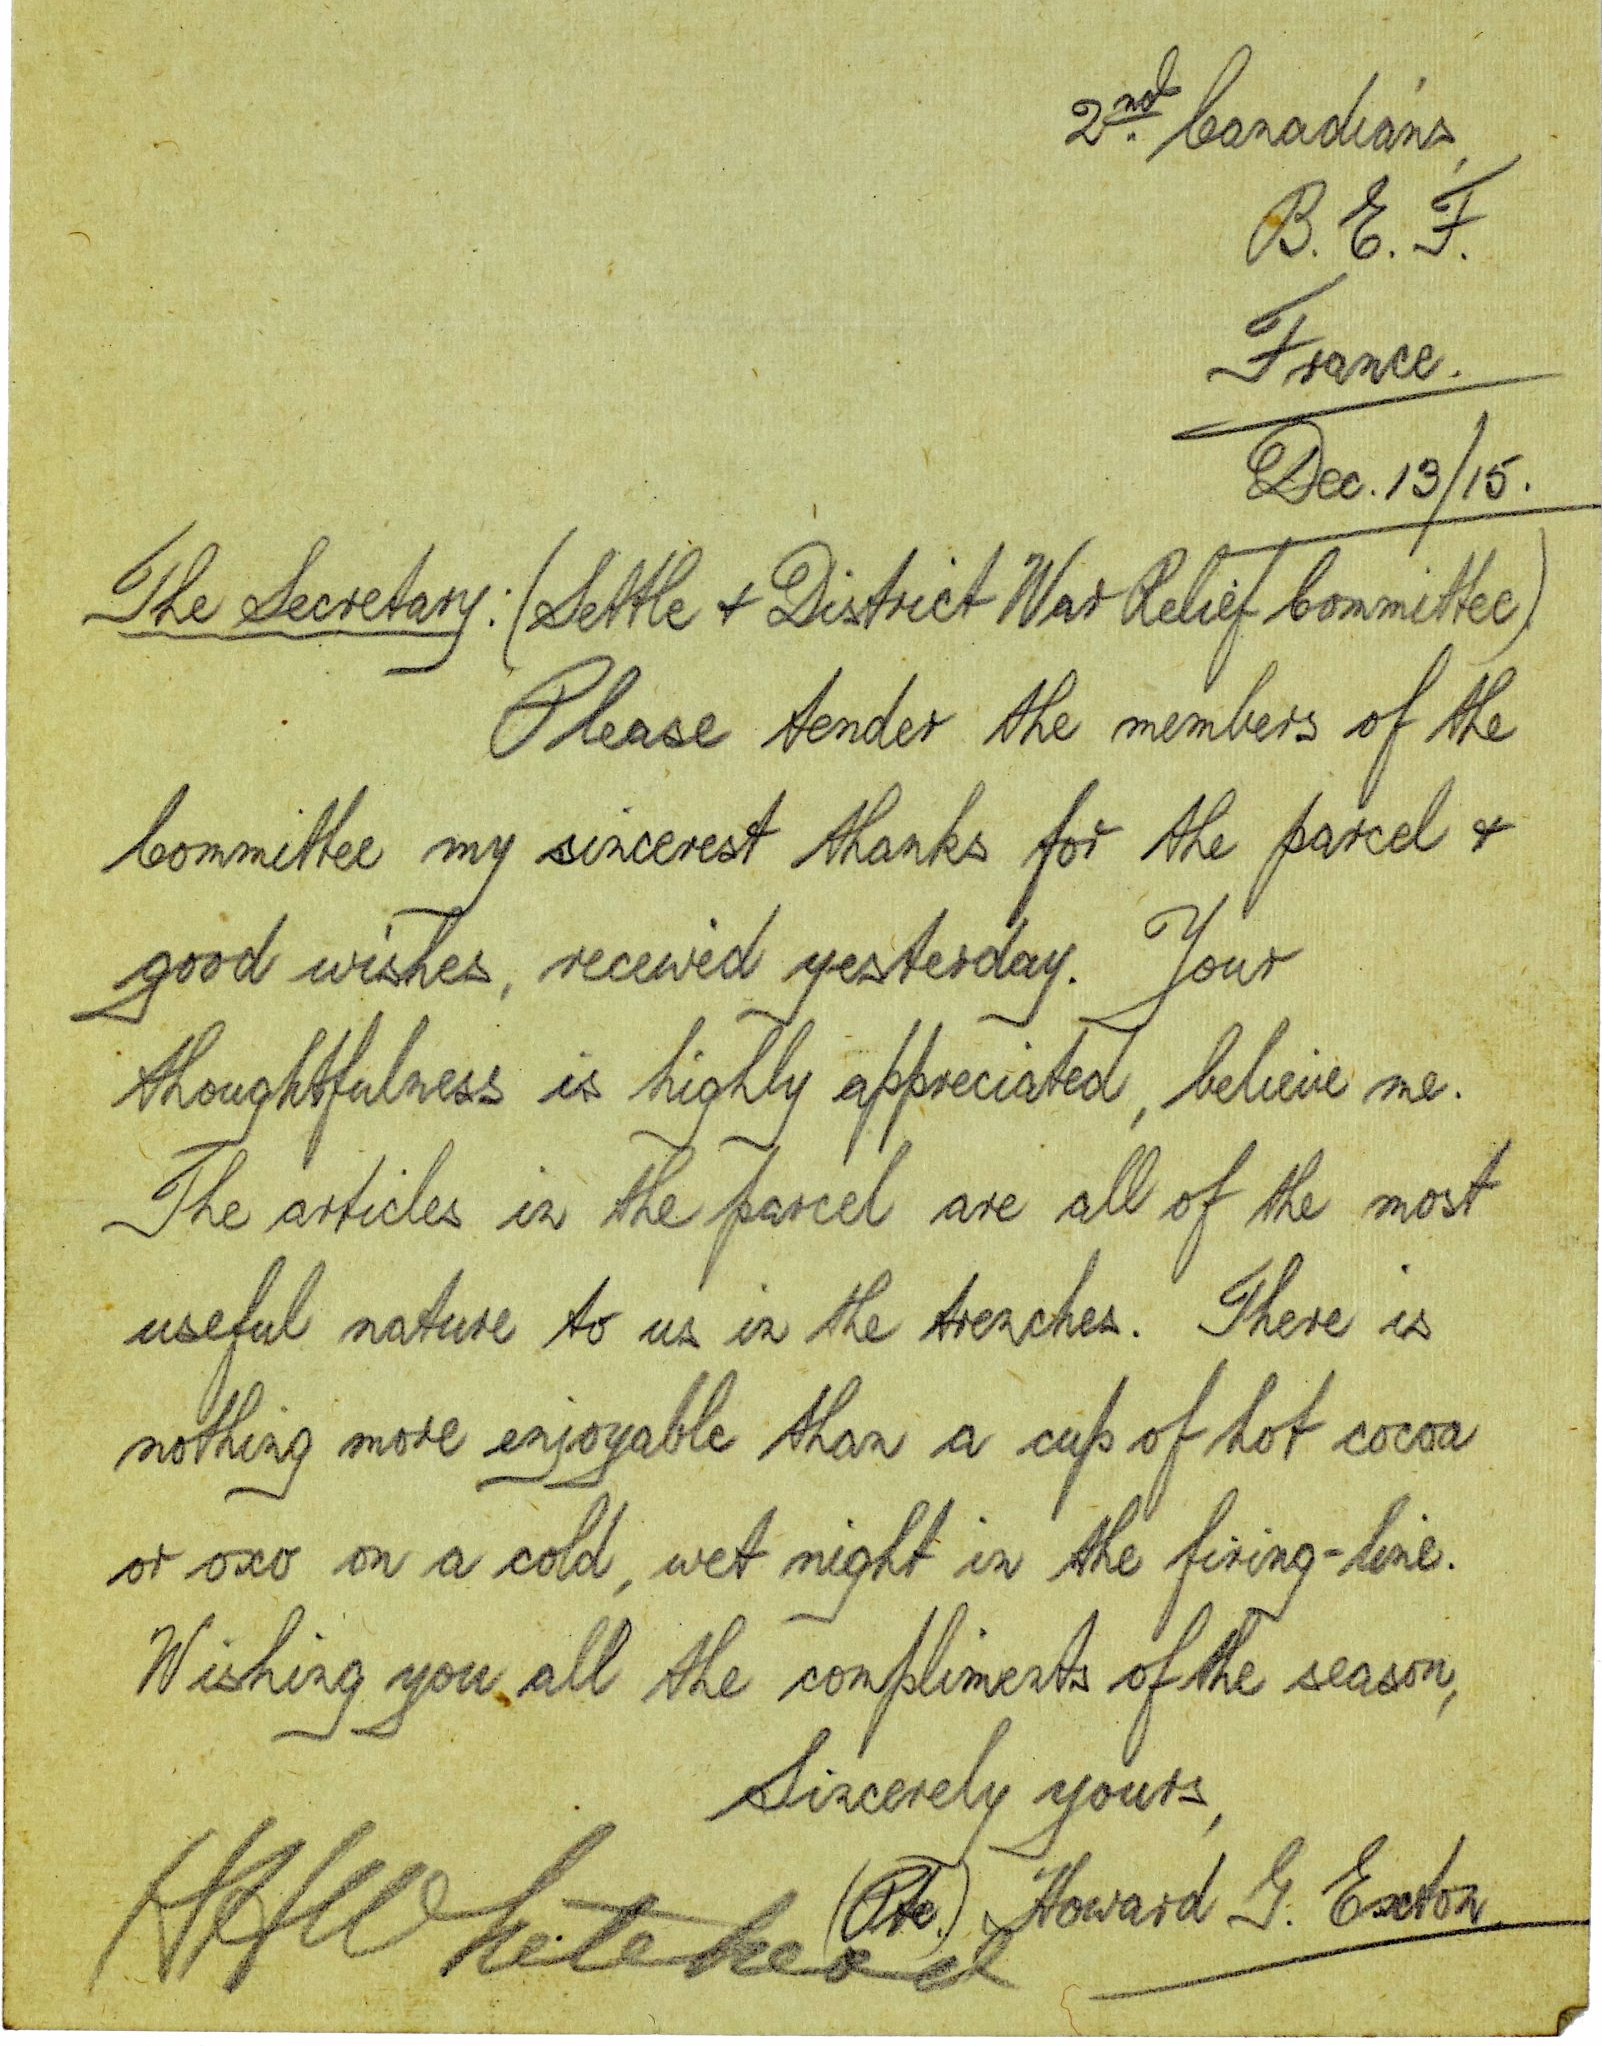 2nd. Canadians,
B. E. F.
France.
Dec. 13/15.
The Secretary: (Settle & District War Relief Committee)
Please tender the members of the
Committee my sincerest thanks for the parcel &
good wishes, received yesterday. Your
thoughtfulness is highly appreciated, believe me.
The articles in the parcel are all of the most
useful nature to us in the trenches. There is
nothing more enjoyable than a cup of hot cocoa
or oxo on a cold, wet night in the firing-line.
Wishing you all the compliments of the season,
Sincerely yours,
(Pte.) Howard G. Exton
Whitehead